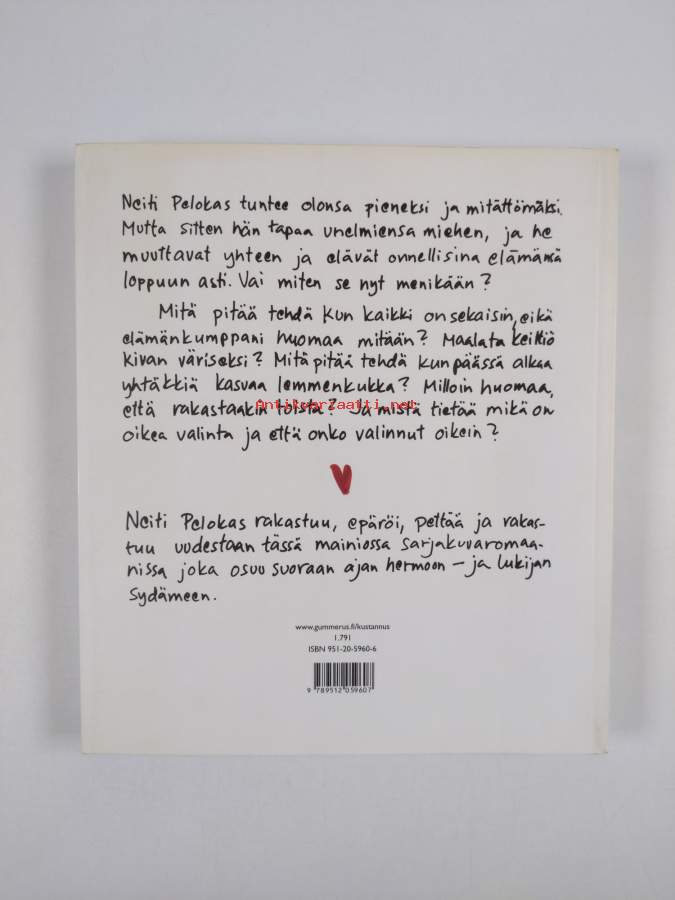 Neiti Pelokas tuntee olonsa pieneksi ja mitättömäksi.
Mutta sitten hän tapaa unelmiensa miehen, ja he
muuttavat yhteen ja elävät onnellisina elämänsä
loppuun asti. Vai miten se nyt menikään?
Mitä pitää tehdä kun kaikki on sekaisin, eikä
elämänkumppani huomaa mitään? Maalata keittiö
kivan väriseksi? Mitä pitää tehdä kun päässä alkaa
yhtäkkiä kasvaa lemmenkukka? Milloin huomaa,
Antikvariaatti.net
että rakastaakin toista? Ja mistä tietää mikä on
oikea valinta ja että onko valinnut oikein?
Neiti Pelokas rakastuu, epäröi, pettää ja rakas-
tuu uudestaan tässä mainiossa sarjakuvaromaa-
nissa joka osuu suoraan ajan hermoon – ja lukijan
sydämeen.
www.gummerus.fi/kustannus
1.791
ISBN 951-20-5960-6
9 789512 059607